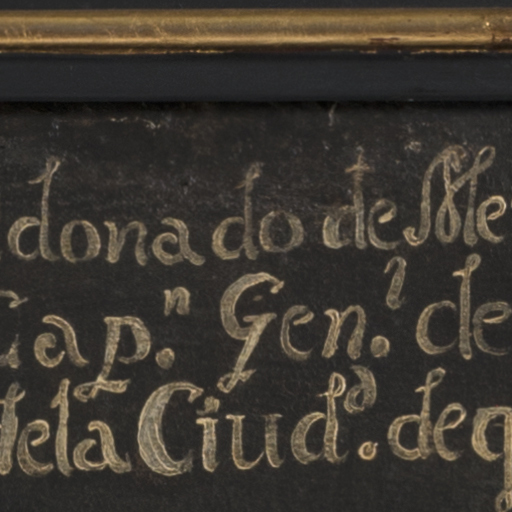 donado de Me
Cap.ⁿ Gen.ˡ de
dela Ciud.ᵃᵈ de q